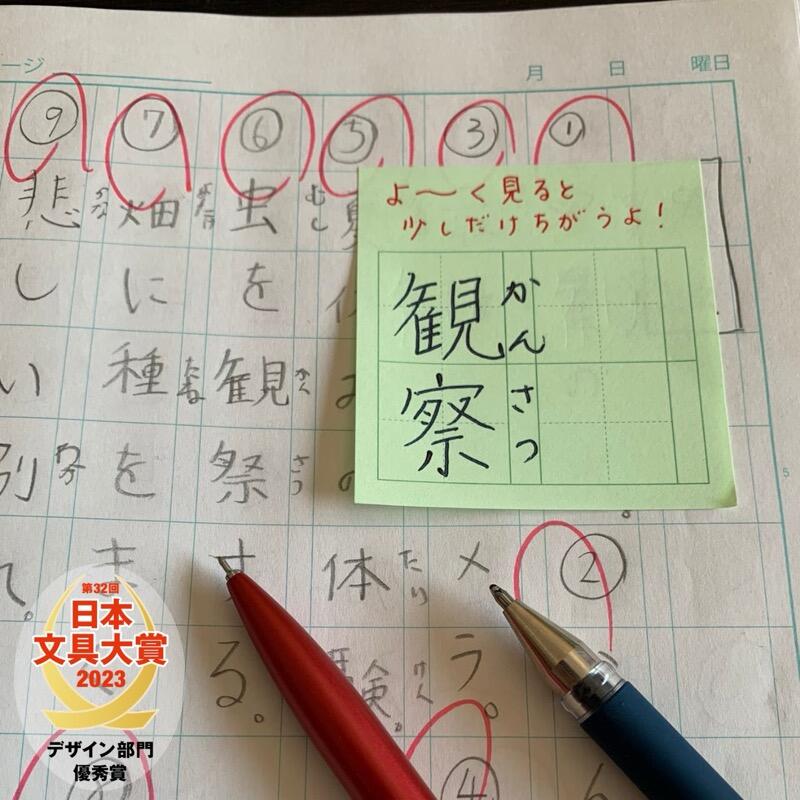 ージ
月 日 曜日
よ〜く見ると
少しだけちがうよ!
観察
かんさつ
①
②
③
メラ。
④
⑤
体験。
けん
⑥
虫を観祭する。
むし
さつ
⑦
畑に種をま
たね
⑨
悲しい別
かな
第32回
日本
文具大賞
2023
デザイン部門
優秀賞